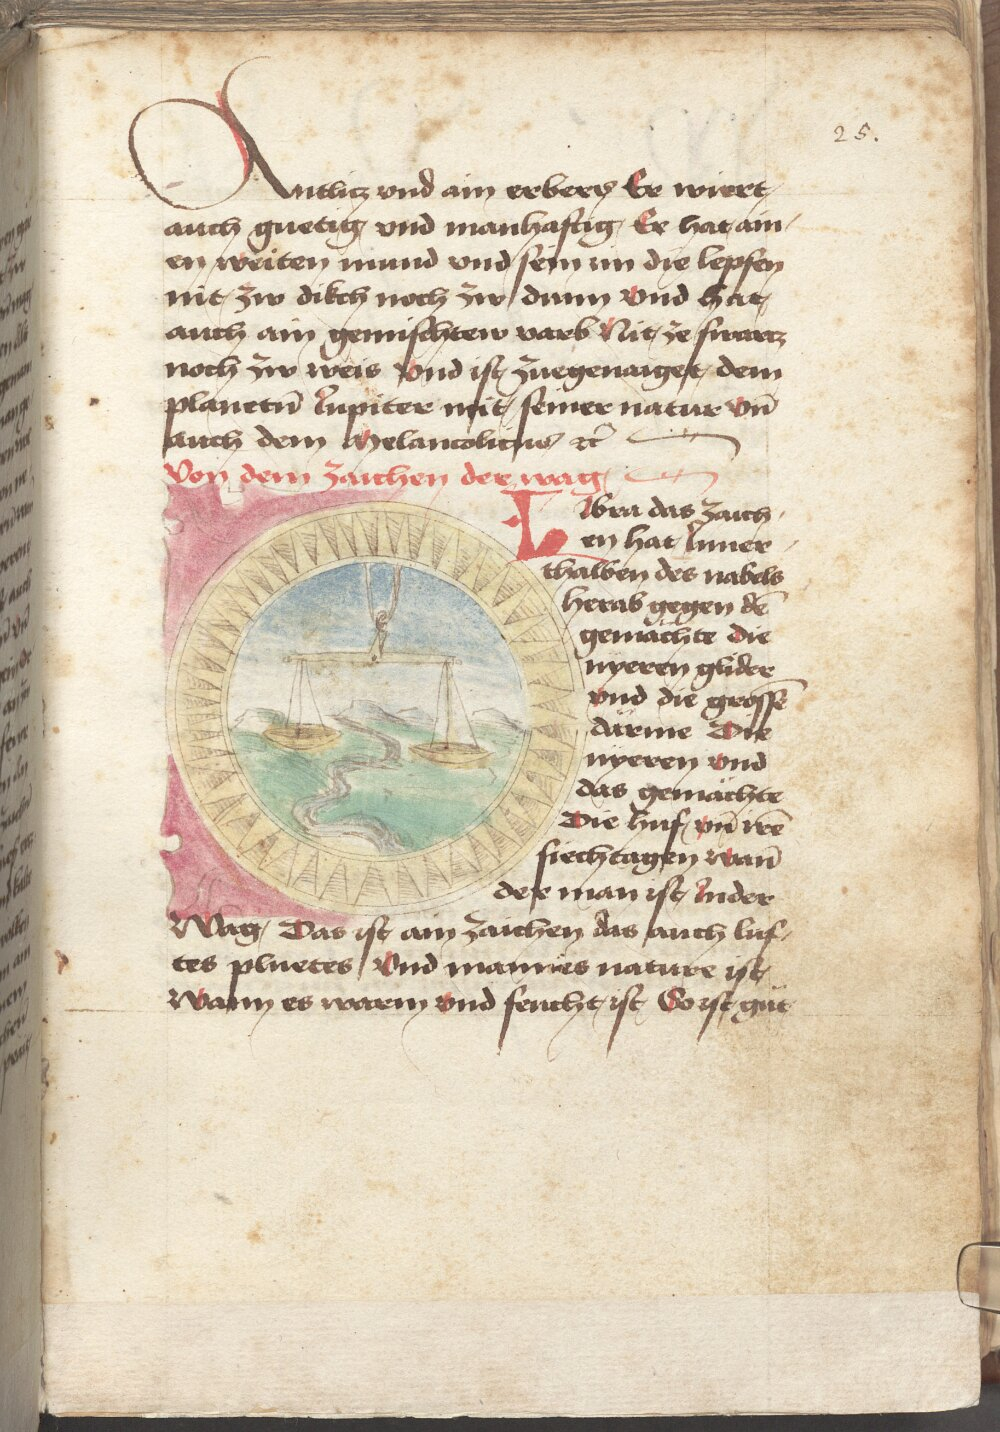 25.
Antlicz vnd ain erberȝ Er wiert
auch guetig vnd manhaftig Er hat ain
en weiten mund vnd sein im die lepsen
nit zw dikch noch zw dunn Vnd hat
auch ain gemischtew varb Nit ze swarcz
noch zw weis Vnd ist zuegenaiget dem
planetn̄ Jupiter mit seiner natur vn̄
auch dem Melancolicus ꝛc̄
Von dem zaichen der wag
Libra das zaich
en hat Inner
thalben des nabels
herab gegen dē
gemächte die
nyeren glider
vnd die grossē
därme Die
nyeren vnd
das gemächte
Die huf vn̄ irē
siechtagen wan̄
der man ist Inder
Wag Das ist ain zaichen das auch luf
tes pluetes Vnd mannes nature ist
Wann es warm vnd feucht ist So ist gůt